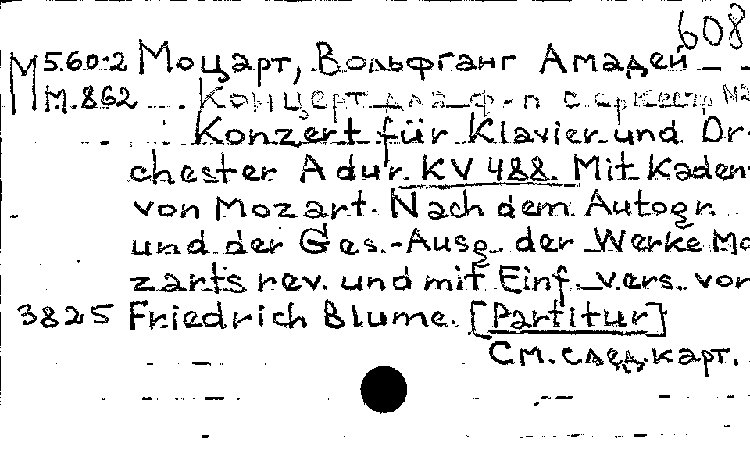 608
М 5.60-2 Моцарт, Вольфганг Амадей
М.862 Концерт для ф-п с оркестр №2
Konzert für Klavier und Or-
chester A dur. KV 488. Mit Kaden
von Mozart. Nach dem Autogr.
und der Ges.-Ausg. der Werke Mo
zarts rev. und mit Einf. vers. von
3825 Friedrich Blume. [Partitur]
См. след. карт.